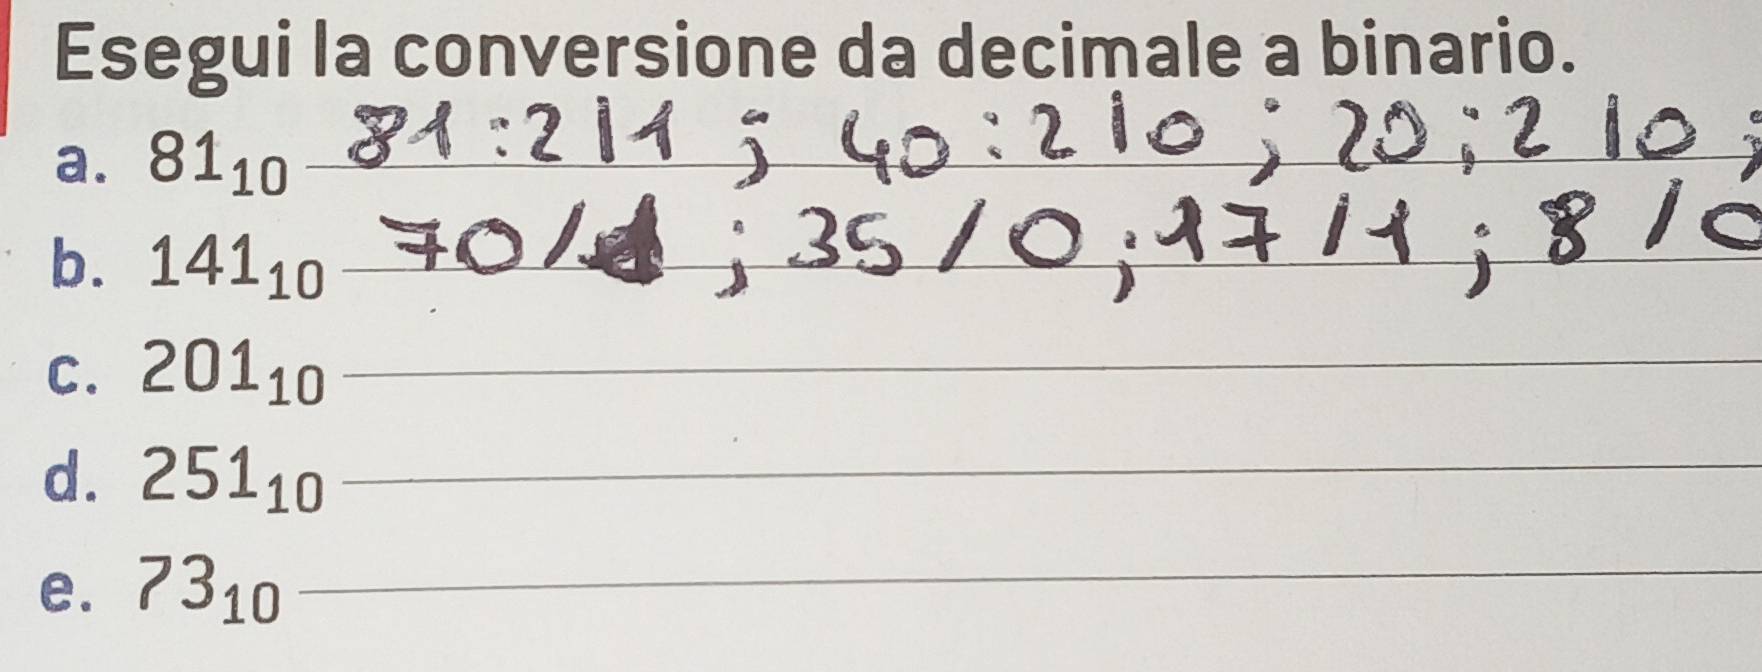 Esegui la conversione da decimale a binario.
a. 81₁₀ 81:2|1 ; 40:2|0 ; 20:2|0 ;
b. 141₁₀ 70/1 ; 35/0 ; 17/1 ; 8/0
c. 201₁₀
d. 251₁₀
e. 73₁₀